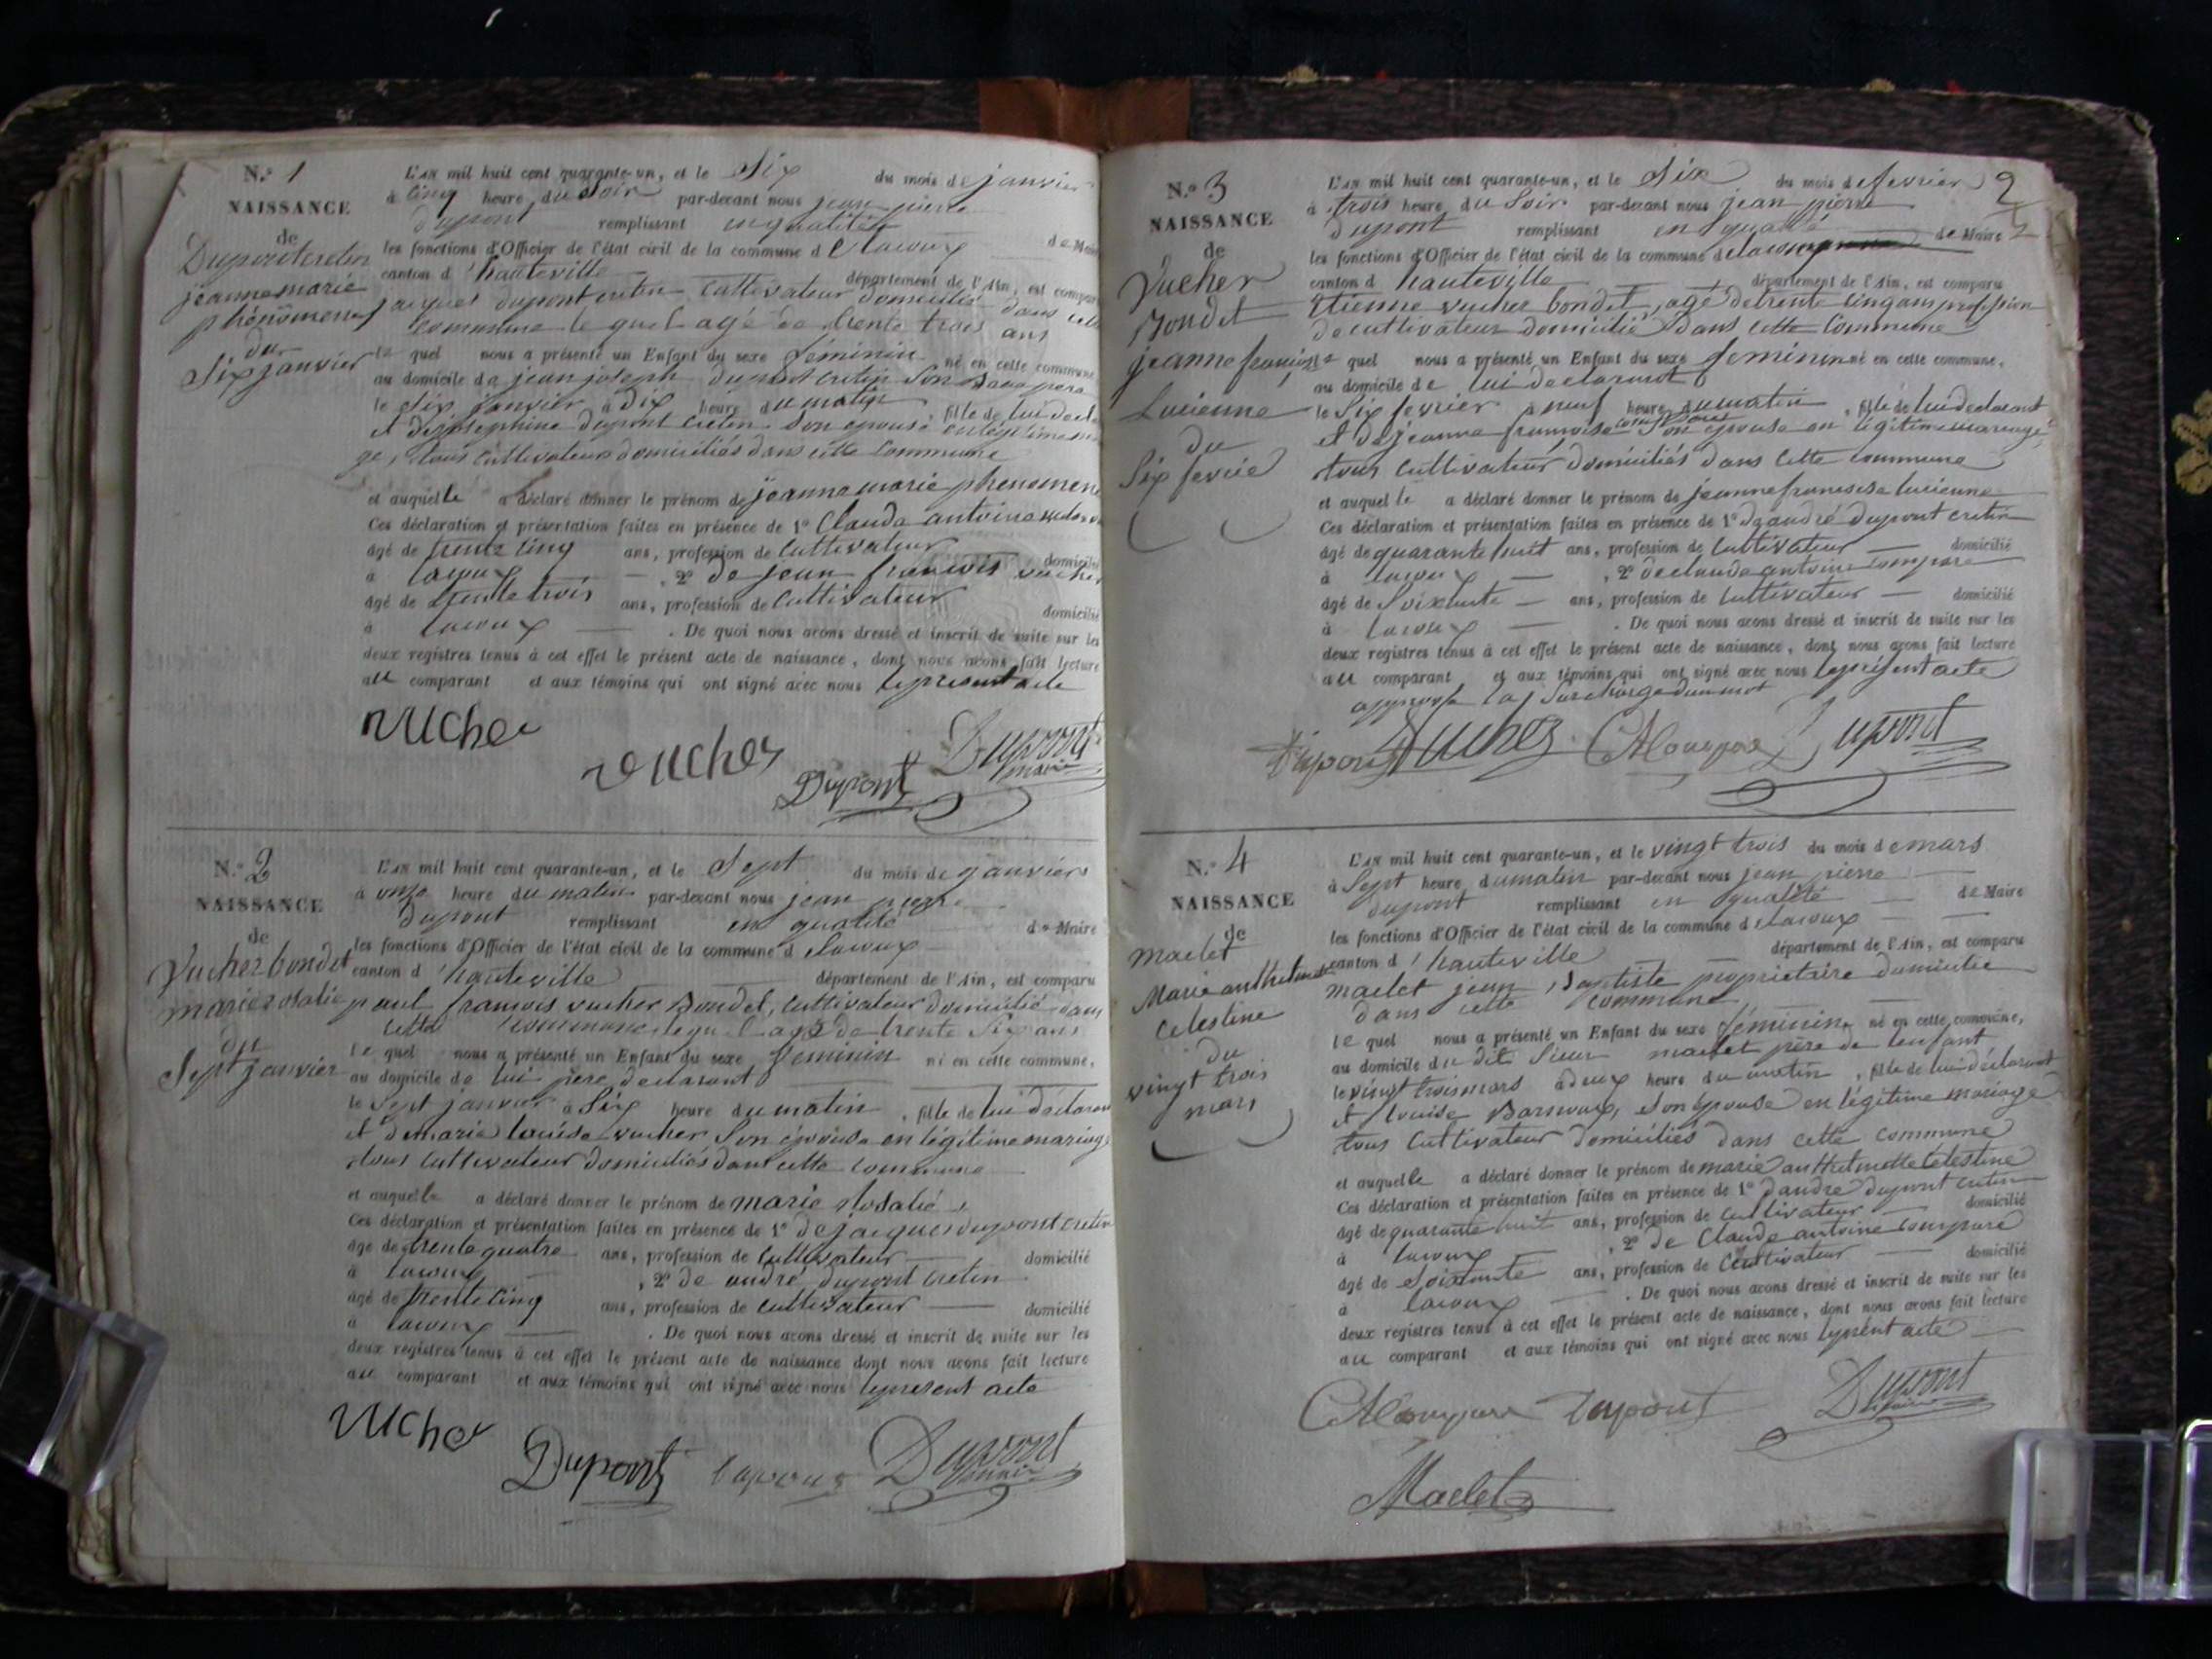 N.º 1
NAISSANCE
de
Dupont cretin
jeanne marie
phénomene
du
Six janvier
L'AN mil huit cent quarante-un, et le Six du mois de janvier
à cinq heure du Soir par-devant nous jean pierre
dupont remplissant en qualité de Maire
les fonctions d'Officier de l'état civil de la commune d elacoux
canton d'hauteville département de l'Ain, est compar
jacques dupont cretin Cultivateur domicilié dans cette
Commune le quel agé de trente trois ans
le quel nous a présenté un Enfant du sexe féminin né en cette commune,
au domicile de jean joseph dupont cretin Son
le Six janvier à Dix heure du matin , fille de lui decl
et de josephine dupont Cretin Son epouse en légitime
ge, tous Cultivateur domiciliés dans cette Commune
et auquel le a déclaré donner le prénom de jeanne marie phenomene
Ces déclaration et présentation faites en présence de 1º Claude antoine
âgé de trente cinq ans, profession de Cultivateur domicilié
à lacoux , 2º de jean francois vucher
âgé de trente trois ans, profession de Cultivateur domicilié
à lacoux . De quoi nous avons dressé et inscrit de suite sur les
deux registres tenus à cet effet le présent acte de naissance, dont nous avons fait lecture
au comparant et aux témoins qui ont signé avec nous le present acte
vucher
vucher
Dupont
Dupont
maire
N.º 2
NAISSANCE
de
Vucher bondet
marie rosalie
du
Sept janvier
L'AN mil huit cent quarante-un, et le Sept du mois de janvier
à onze heure du matin par-devant nous jean pierre
dupont remplissant en qualité de Maire
les fonctions d'Officier de l'état civil de la commune d elacoux
canton d'hauteville département de l'Ain, est comparu
paul francois vucher Bondet, Cultivateur domicilié dans
cette commune lequel agé de trente Six ans
le quel nous a présenté un Enfant du sexe feminin né en cette commune,
au domicile de lui pere declarant
le Sept janvier à Six heure du matin , fille de lui déclarant
et de marie louise vucher Son épouse en légitime mariage
tous Cultivateur domiciliés dans cette commune
et auquel le a déclaré donner le prénom de marie Rosalie
Ces déclaration et présentation faites en présence de 1º de jacques dupont cretin
âgé de trente quatre ans, profession de Cultivateur domicilié
à lacoux , 2º de andré dupont cretin
âgé de trente cinq ans, profession de cultivateur domicilié
à lacoux . De quoi nous avons dressé et inscrit de suite sur les
deux registres tenus à cet effet le présent acte de naissance dont nous avons fait lecture
au comparant et aux témoins qui ont signé avec nous le present acte
vucher
Dupont
Dupont
maire
2
N.º 3
NAISSANCE
de
Vucher
Bondet
jeanne françoise
Lucienne
du
Six fevrié
L'AN mil huit cent quarante-un, et le Six du mois de fevrier
à trois heure du Soir par-devant nous jean pierre
dupont remplissant en qualité de Maire
les fonctions d'Officier de l'état civil de la commune d elacoux
canton d hauteville département de l'Ain, est comparu
Etienne vucher bondet, agé de trente cinq ans profession
de cultivateur domicilié dans cette Commune
le quel nous a présenté un Enfant du sexe feminin né en cette commune,
au domicile de lui declarant
le Six fevrier à neuf heure du matin , fille de lui declarant
et de jeanne françoise Son epouse en légitime mariage
tous cultivateur domiciliés dans cette commune
et auquel le a déclaré donner le prénom de jeanne francoise lucienne
Ces déclaration et présentation faites en présence de 1º d andré dupont cretin
âgé de quarante huit ans, profession de Cultivateur domicilié
à lacoux , 2º de claude antoine compare
âgé de Soixante ans, profession de Cultivateur domicilié
à lacoux . De quoi nous avons dressé et inscrit de suite sur les
deux registres tenus à cet effet le présent acte de naissance, dont nous avons fait lecture
au comparant et aux témoins qui ont signé avec nous le présent acte
la Surcharge dun mot
Dupont Vucher CA Compare Dupont
N.º 4
NAISSANCE
de
maclet
Marie anthelmette
Celestine
du
vingt trois
mars
L'AN mil huit cent quarante-un, et le vingt trois du mois de mars
à Sept heure du matin par-devant nous jean pierre
dupont remplissant en qualité de Maire
les fonctions d'Officier de l'état civil de la commune d elacoux
canton d'hauteville département de l'Ain, est comparu
maclet jean Baptiste proprietaire domicilie
dans cette commune
le quel nous a présenté un Enfant du sexe féminin né en cette commune,
au domicile du dit Sieur maclet père de lenfant
le vingt trois mars à deux heure du matin , fille de lui déclarant
et louise Barnoux, son épouse en légitime mariage
tous Cultivateur domiciliés dans cette commune
et auquel le a déclaré donner le prénom de marie anthelmette Celestine
Ces déclaration et présentation faites en présence de 1º d andré dupont cretin
âgé de quarante huit ans, profession de Cultivateur domicilié
à lacoux , 2º de Claude antoine compare
âgé de Soixante ans, profession de Cultivateur domicilié
à lacoux . De quoi nous avons dressé et inscrit de suite sur les
deux registres tenus à cet effet le présent acte de naissance, dont nous avons fait lecture
au comparant et aux témoins qui ont signé avec nous le présent acte
CA Compare Dupont Dupont
Maclet